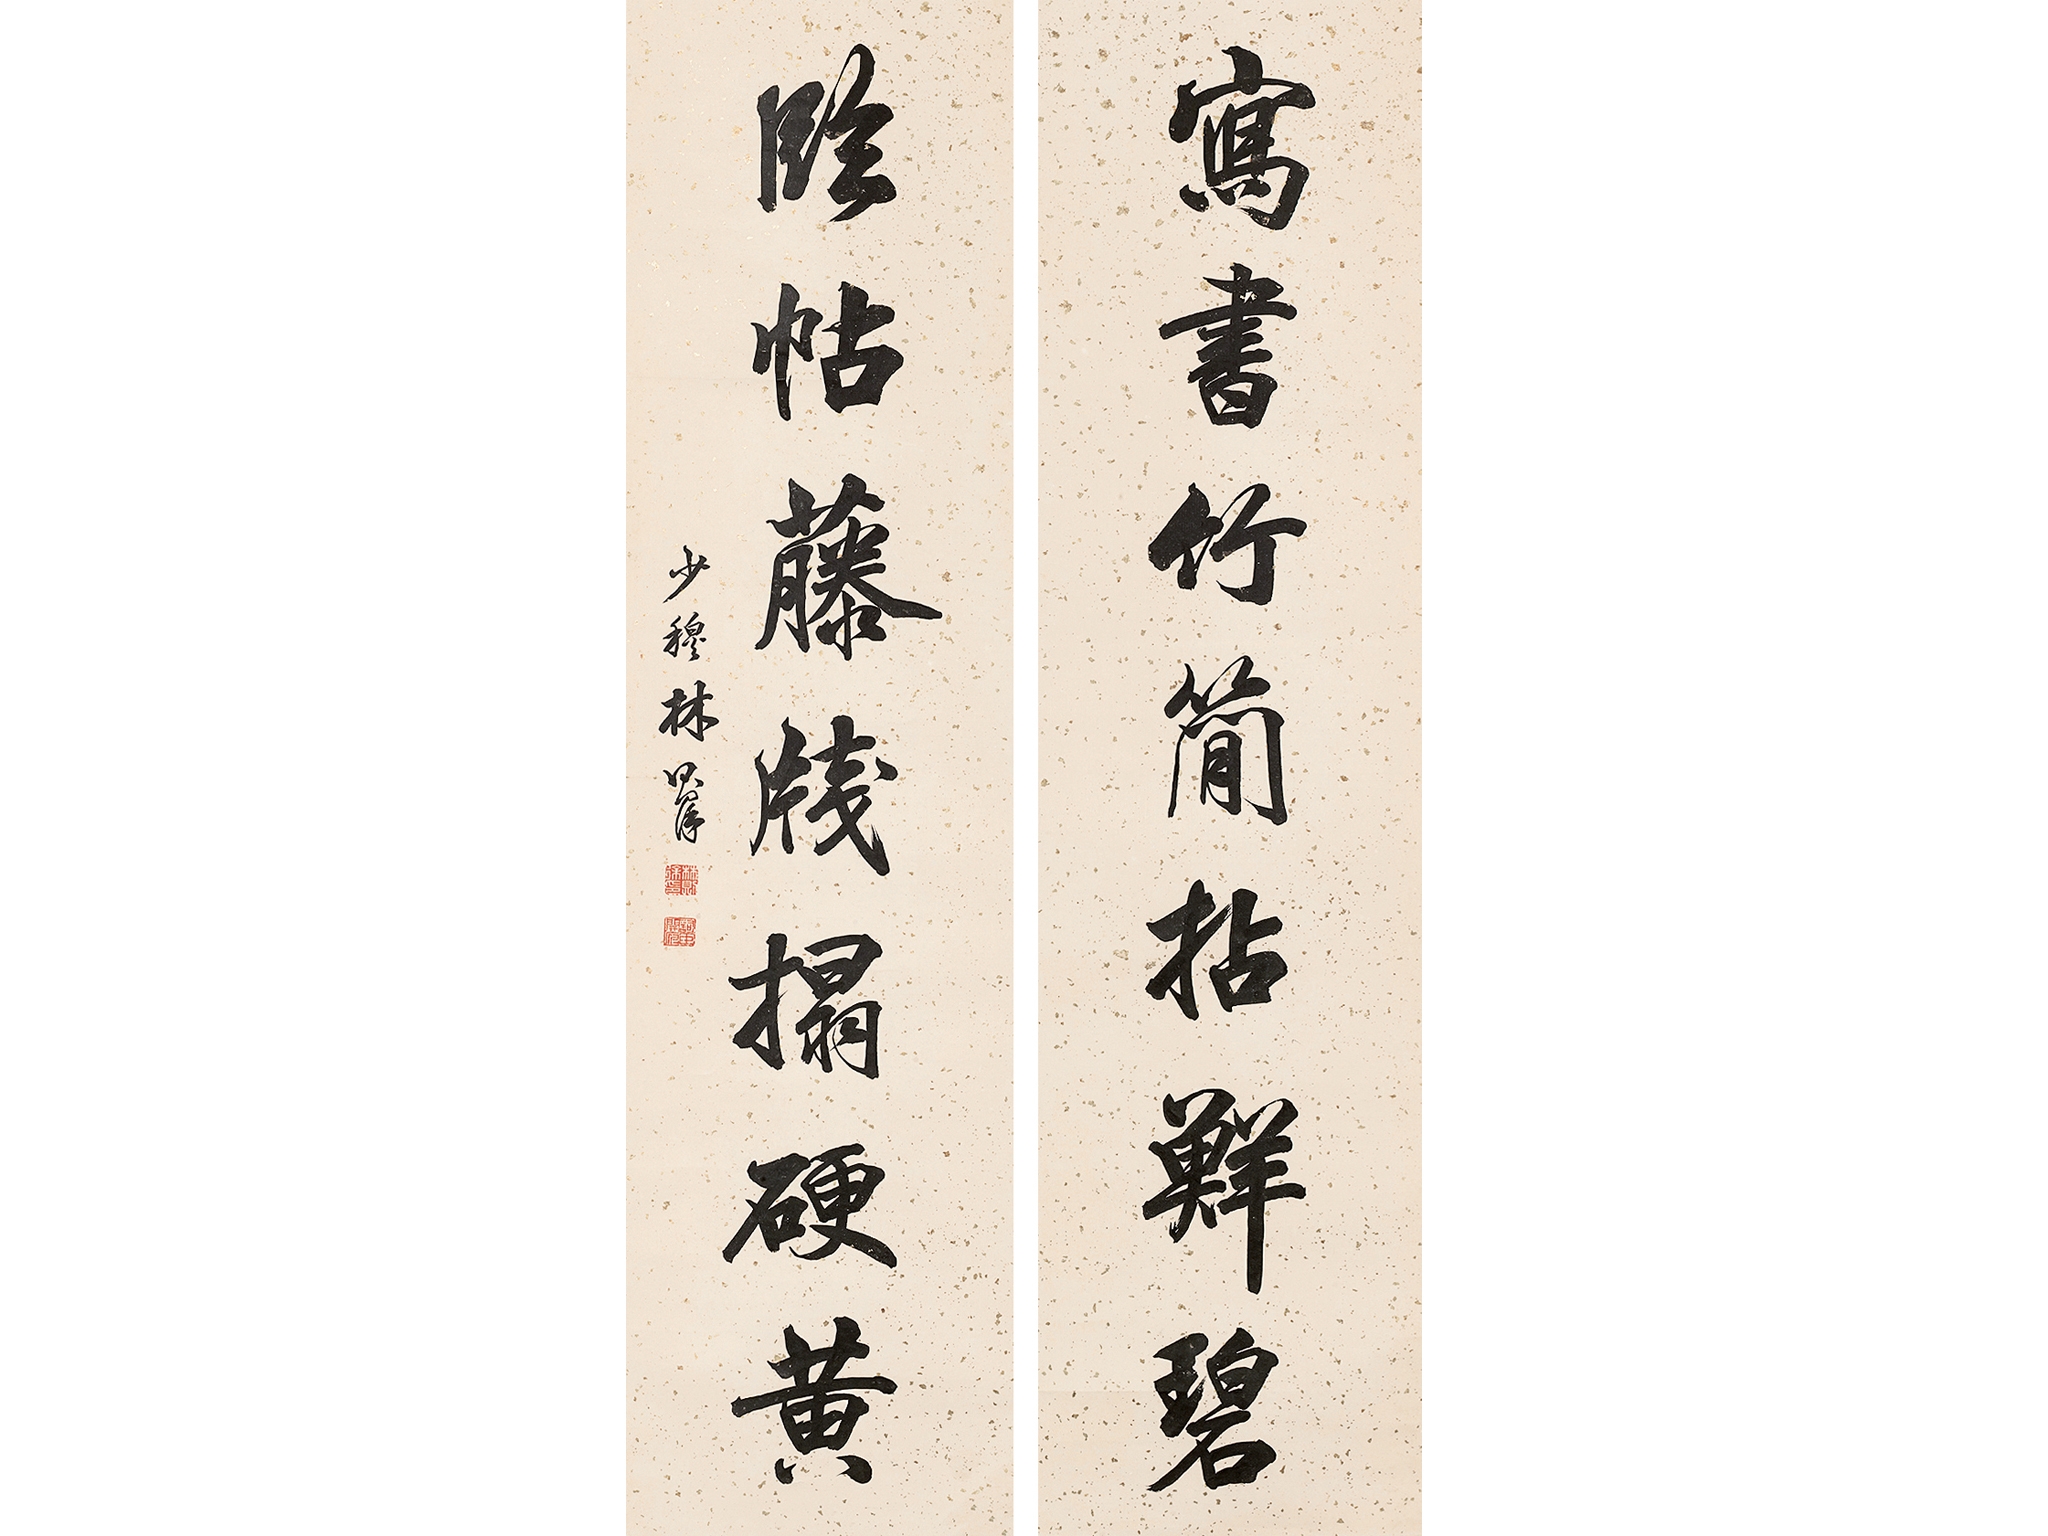 寫書竹簡拈鮮碧
臨帖藤牋搨硬黄
少穆林則徐
林則徐印